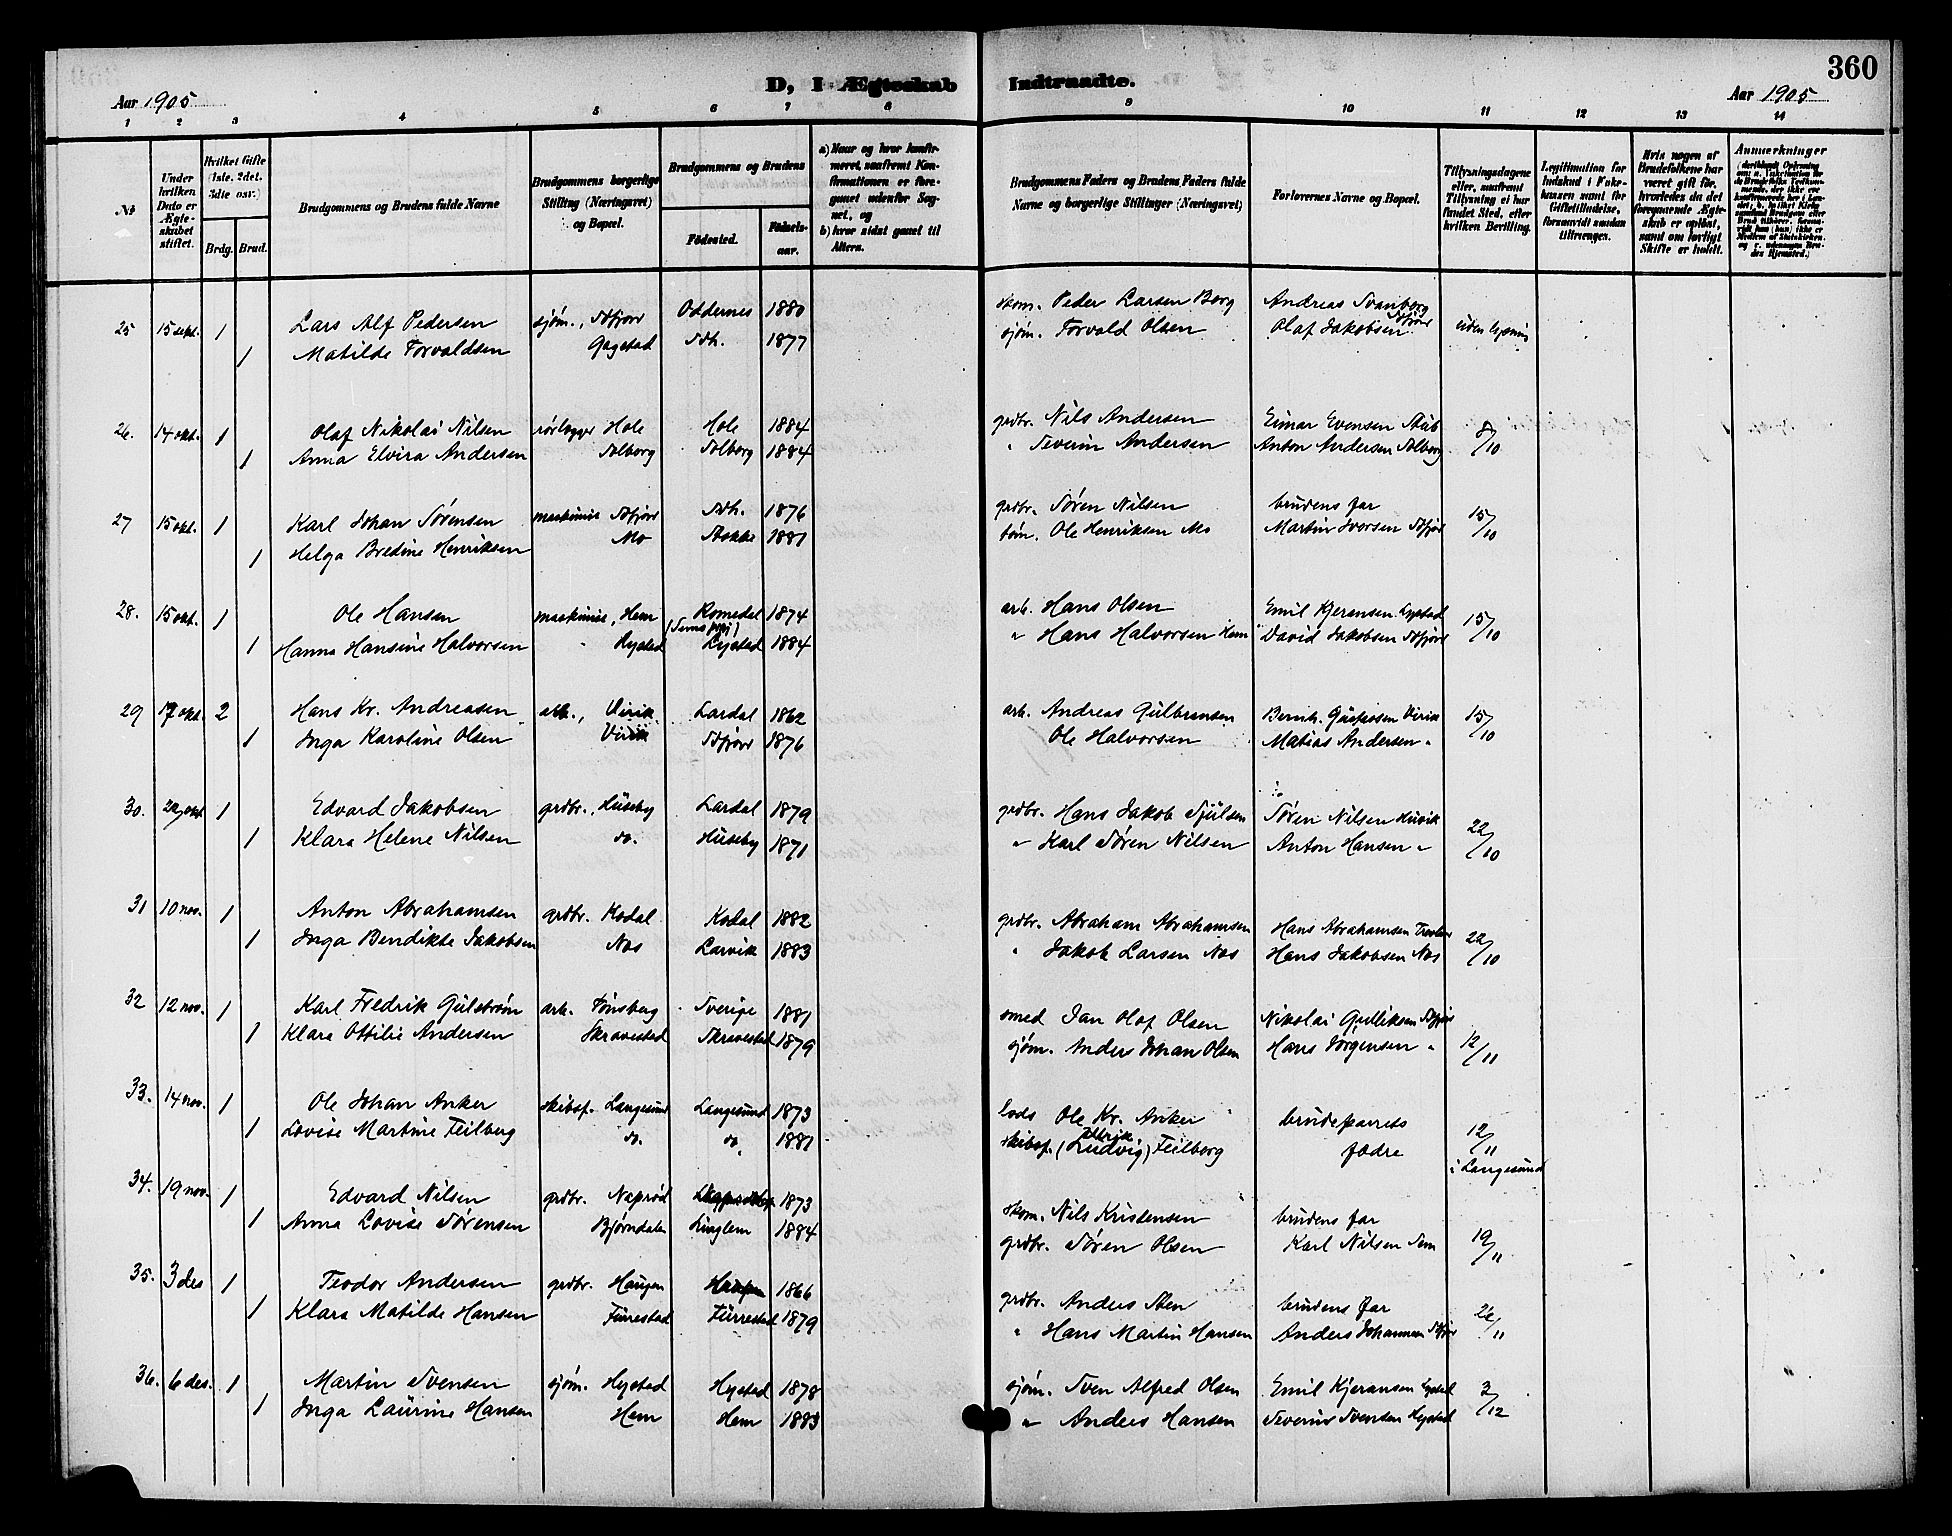 360
D, I Ægteskab Indtraadte.
Aar 1905
Aar 1905
1 2 3 4 5 6 7 8 9 10 11 12 13 14
No.
Under hvilken Dato er Ægteskabet stiftet.
Hvilket Gifte (1ste, 2det, 3die osv.)
Brdg. Brud.
Brudgommens og Brudens fulde Navne
Brudgommens borgerlige Stilling (Næringsvei) og Bopæl.
Brudgommens og Brudens
Fødested.
Fødselsaar.
a) Naar og hvor konfirmeret, saafremt Konfirmationen er foregaaet udenfor Sognet, og
b) hvor sidst gaaet til Alters.
Brudgommens Faders og Brudens Faders fulde Navne og borgerlige Stillinger (Næringsvei)
Forlovernes Navne og Bopæl.
Tillysningsdagene eller, saafremt Tillysning ei har fundet Sted, efter hvilken Bevilling.
Legitimation for Indskud i Enkekassen samt for Giftetilladelse, forsaavidt saadan tiltrænges.
Hvis nogen af Brudefolkene har været gift før, hvorledes da det foregaaende Ægteskab er opløst, samt om lovligt Skifte er holdt.
Anmærkninger
25 15 sept. 1 Lars Alf Pedersen sjøm., Sdfjord Oddernes 1880 skom. Peder Larsen Borg Andreas Svanborg
1 Matilde Torvaldsen Gogstad Sdh. 1877 sjøm. Torvald Olsen Olaf Jakobsen Sdfjord uden lysning
26. 14 okt. 1 Olaf Nikolai Nilsen rørlægger Hole Hole 1884 grdbr. Nils Andersen Einar Evensen Stub 8/10
1 Anna Elvira Andersen Solberg Solberg 1884 " Severin Andersen Anton Andersen Solberg
27 15 okt. 1 Karl Johan Sørensen maskinis Sdfjord Sdh. 1876 grdbr. Søren Nilsen brudens far 15/10
1 Helga Bredine Henriksen Mo Stokke 1881 tøm. Ole Henriksen Mo Martin Iversen Sdfjord
28. 15 okt. 1 Ole Hansen maskinis, Hem Romedal 1874 arb. Hans Olsen Emil Kjeransen Lystad 15/10
1 Hanna Hansine Halvorsen Lystad Lystad 1884 " Hans Halvorsen Hem David Jakobsen Sdfjord
29 17 okt. 2 Hans Kr. Andreasen arb., Virik Lardal 1862 arb. Andreas Gulbransen Bernh. Gustavsen Virik 15/10
1 Inga Karoline Olsen Virik Sdfjord 1876 Ole Halvorsen Matias Andersen "
30. 29 okt 1 Edvard Jakobsen grdbr., Huseby Lardal 1879 grdbr. Hans Jakob Sjulsen Søren Nilsen Husvik 22/10
1 Klara Helene Nilsen do. Huseby 1871 " Karl Søren Nilsen Anton Hansen "
31 10 nov. 1 Anton Abrahamsen grdbr. Kodal Kodal 1882 grdbr. Abraham Abrahamsen Hans Abrahamsen 22/10
1 Inga Bendikte Jakobsen Nos Larvik 1883 " Jakob Larsen Nos Hans Jakobsen Nos
32 12 nov. 1 Karl Fredrik Gulstrøm arb. Tønsberg Sverige 1881 smed Jan Olof Olsen Nikolai Gulliksen Sdfjord 12/11
1 Klara Ottilie Andersen Skravestad Skravestad 1879 sjøm. Anders Johan Olsen Hans Jørgensen "
33. 14 nov. 1 Ole Johan Anker skibsf. Langesund Langesund 1873 lods Ole Kr. Anker brudeparrets 12/11
1 Lovise Martine Feilberg do. do. 1881 skibsf. (Ludvig) Feilberg fædre i Langesund
34. 19 nov. 1 Edvard Nilsen grdbr. Naprød 1873 skom. Nils Kristensen brudens far 19/11
1 Anna Lovise Sørensen Bjørndalen Linglem 1884 grdbr. Søren Olsen Karl Nilsen Sem
35. 3 des 1 Teodor Andersen grdbr. Haugen Haugen 1866 grdbr. Anders Sten brudens far 26/11
1 Klara Matilde Hansen Furrestad Furrestad 1879 " Hans Martin Hansen Anders Johannesen Sdfjord
36. 6 des. 1 Martin Svensen sjøm. Hystad Hystad 1878 sjøm. Sven Alfred Olsen Emil Kjeransen Lystad 3/12
1 Inga Laurine Hansen Hem Hem 1883 " Anders Hansen Severin Svensen Hystad